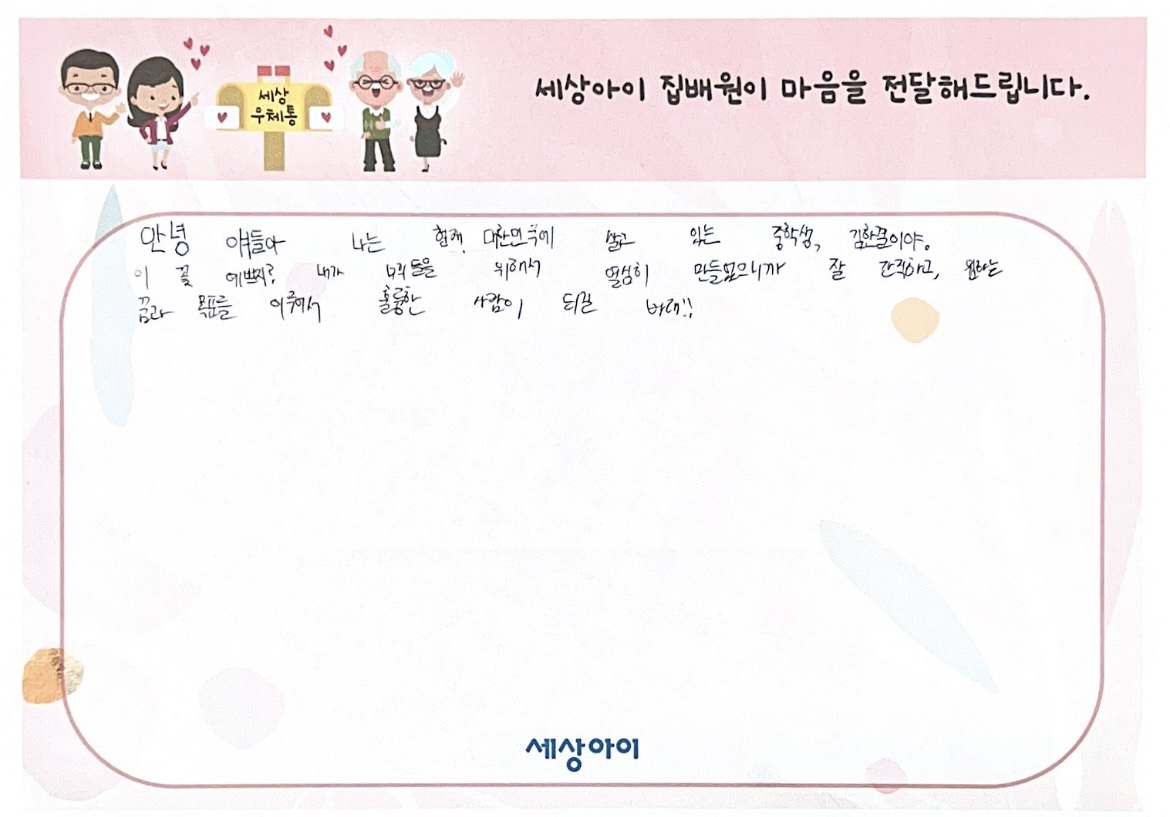 세상아이 집배원이 마음을 전달해드립니다.
세상
우체통
안녕 얘들아 나는 현재 대한민국에 살고 있는 중학생, 김한결이야.
이 꽃 예쁘지? 내가 너희들을 위해서 열심히 만들었으니까 잘 간직하고, 원하는
꿈과 목표를 이루어서 훌륭한 사람이 되길 바래!!
세상아이